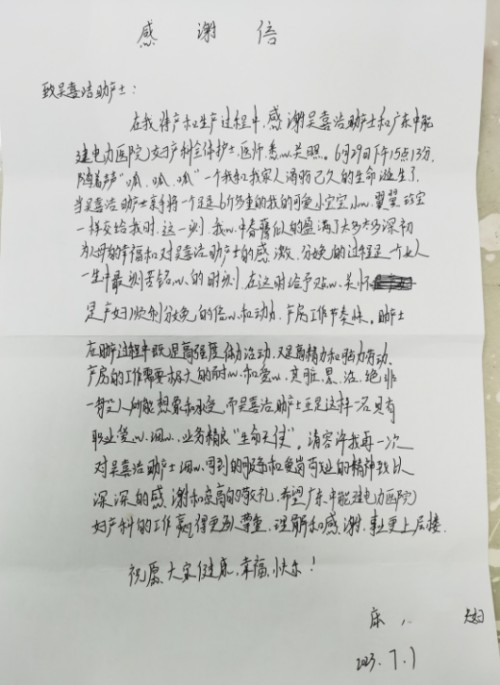 感谢信
致吴喜洁助产士：
在我待产和生产过程中，感谢吴喜洁助产士和广东中能
建电力医院妇产科全体护士、医师悉心关照。6月29日下午15点13分，
随着声“呱、呱、呱”一个我和我家人涌弱已久的生命诞生了，
当吴喜洁助产士亲手将一个足足6斤多重的我的可爱小宝宝小心翼翼的
一样交给我时，这一刻，我心中春藤似的盈满了大多大多深初
为父母的幸福和对吴喜洁助产士的感激，分娩的过程是一个女人
一生中最刻苦铭心的时刻，在这时给予贴心关怀
是产妇顺利分娩的信心和动力，产房工作节奏快，助产士
在助产过程中既是高强度体力活动，又是高精力和脑力劳动，
产房的工作需要极大的耐心和爱心，其脏、累、治、绝非
一般人所能想象和承受，而吴喜洁助产士正是这样一名具有
职业爱心、细心、业务精良“生命天使”。请容许我再一次
对吴喜洁助产士细心周到的服务和爱岗敬业的精神致以
深深的感谢和崇高的敬礼，希望广东中能建电力医院
妇产科的工作赢得更到尊重、理解和感谢，事业更上层楼，
祝愿大家健康、幸福、快乐！
康 夫妇
2023.7.1